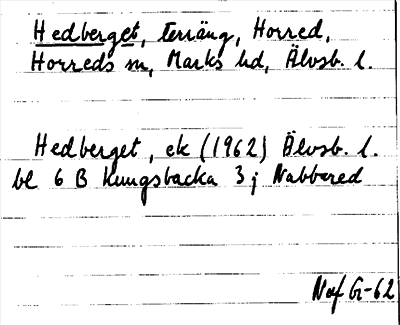 Hedberget, terräng, Horred,
Horreds sn, Marks hd, Älvsb. l.
Hedberget, ek (1962) Älvsb. l.
bl 6 B Kungsbacka 3 j Nabbered
Naf G-62